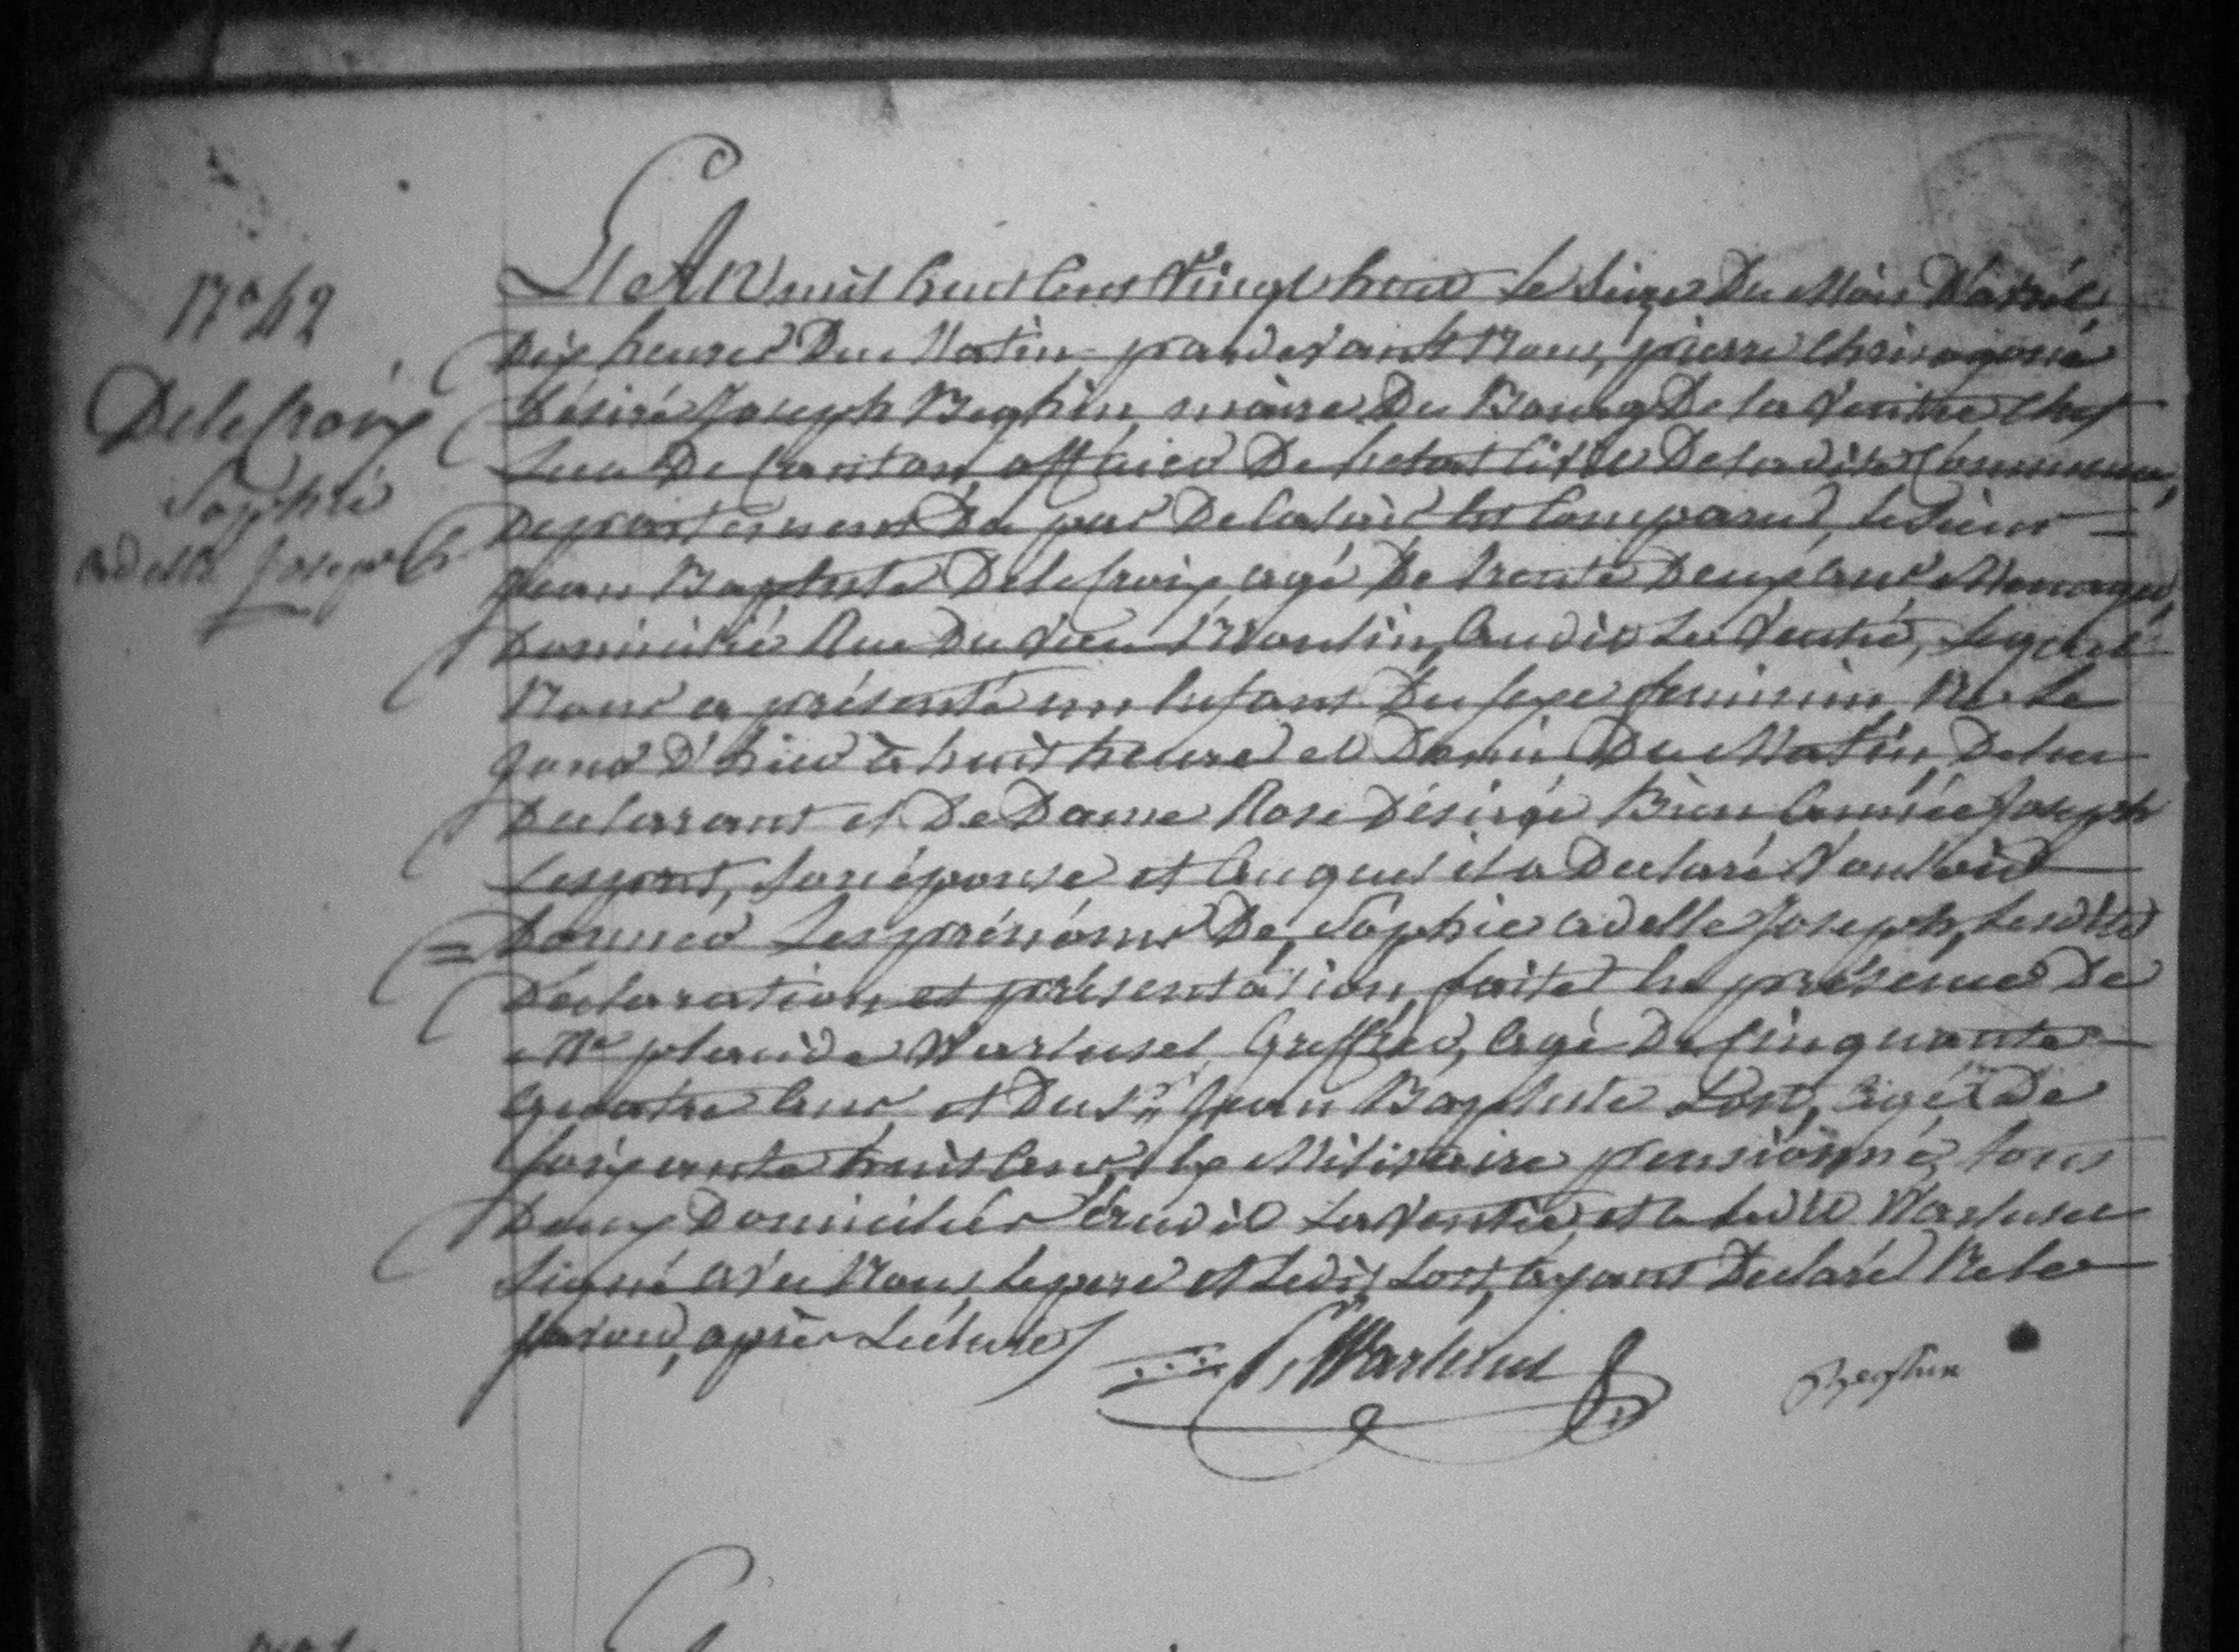 N° 42
Delecroix
Sophie
adelle Joseph
L'An mil huit cent Vingt huit le seize Du Mois D'avril
Dix heures Du Matin pardevant Nous, pierre Chrisogone
Désiré Joseph Beghin, maire Du Bourg De la Ventie Chef
Lieu De Canton, officier De L'etat Civil De ladite Commune,
Departement Du pas De Calais Est Comparu, le Sieur =
Jean Baptiste Delecroix, agé De trente Deux ans
Domicilié Rue Du Vieu Moulin, audit La Ventie, Lequel
Nous a présenté un Enfant Du sexe feminin, Né Le
Jour D'hier à huit heures et Demi Du Matin, De lui
Declarant et De Dame Rose Désirée Bien aimée Joseph
Lespint, son épouse et auquel il a Declaré Vouloir
= Donner Les prénoms De, Sophie adelle Joseph, Lesdites
Déclaration et présentation, faites En présence De
Mr placide Warlusel, Greffier, agé De Cinquante
quatre ans, et Du Sr Jean Baptiste Lort, agé De
soixante huit ans, Ex Militaire pensionné, tous
Deux Domiciliés audit La Ventie, et a Ledit Warlusel
Signé avec Nous, le pere et Ledit Lort, ayant Declaré Ne le
savoir, après Lecture
Warlusel
Beghin